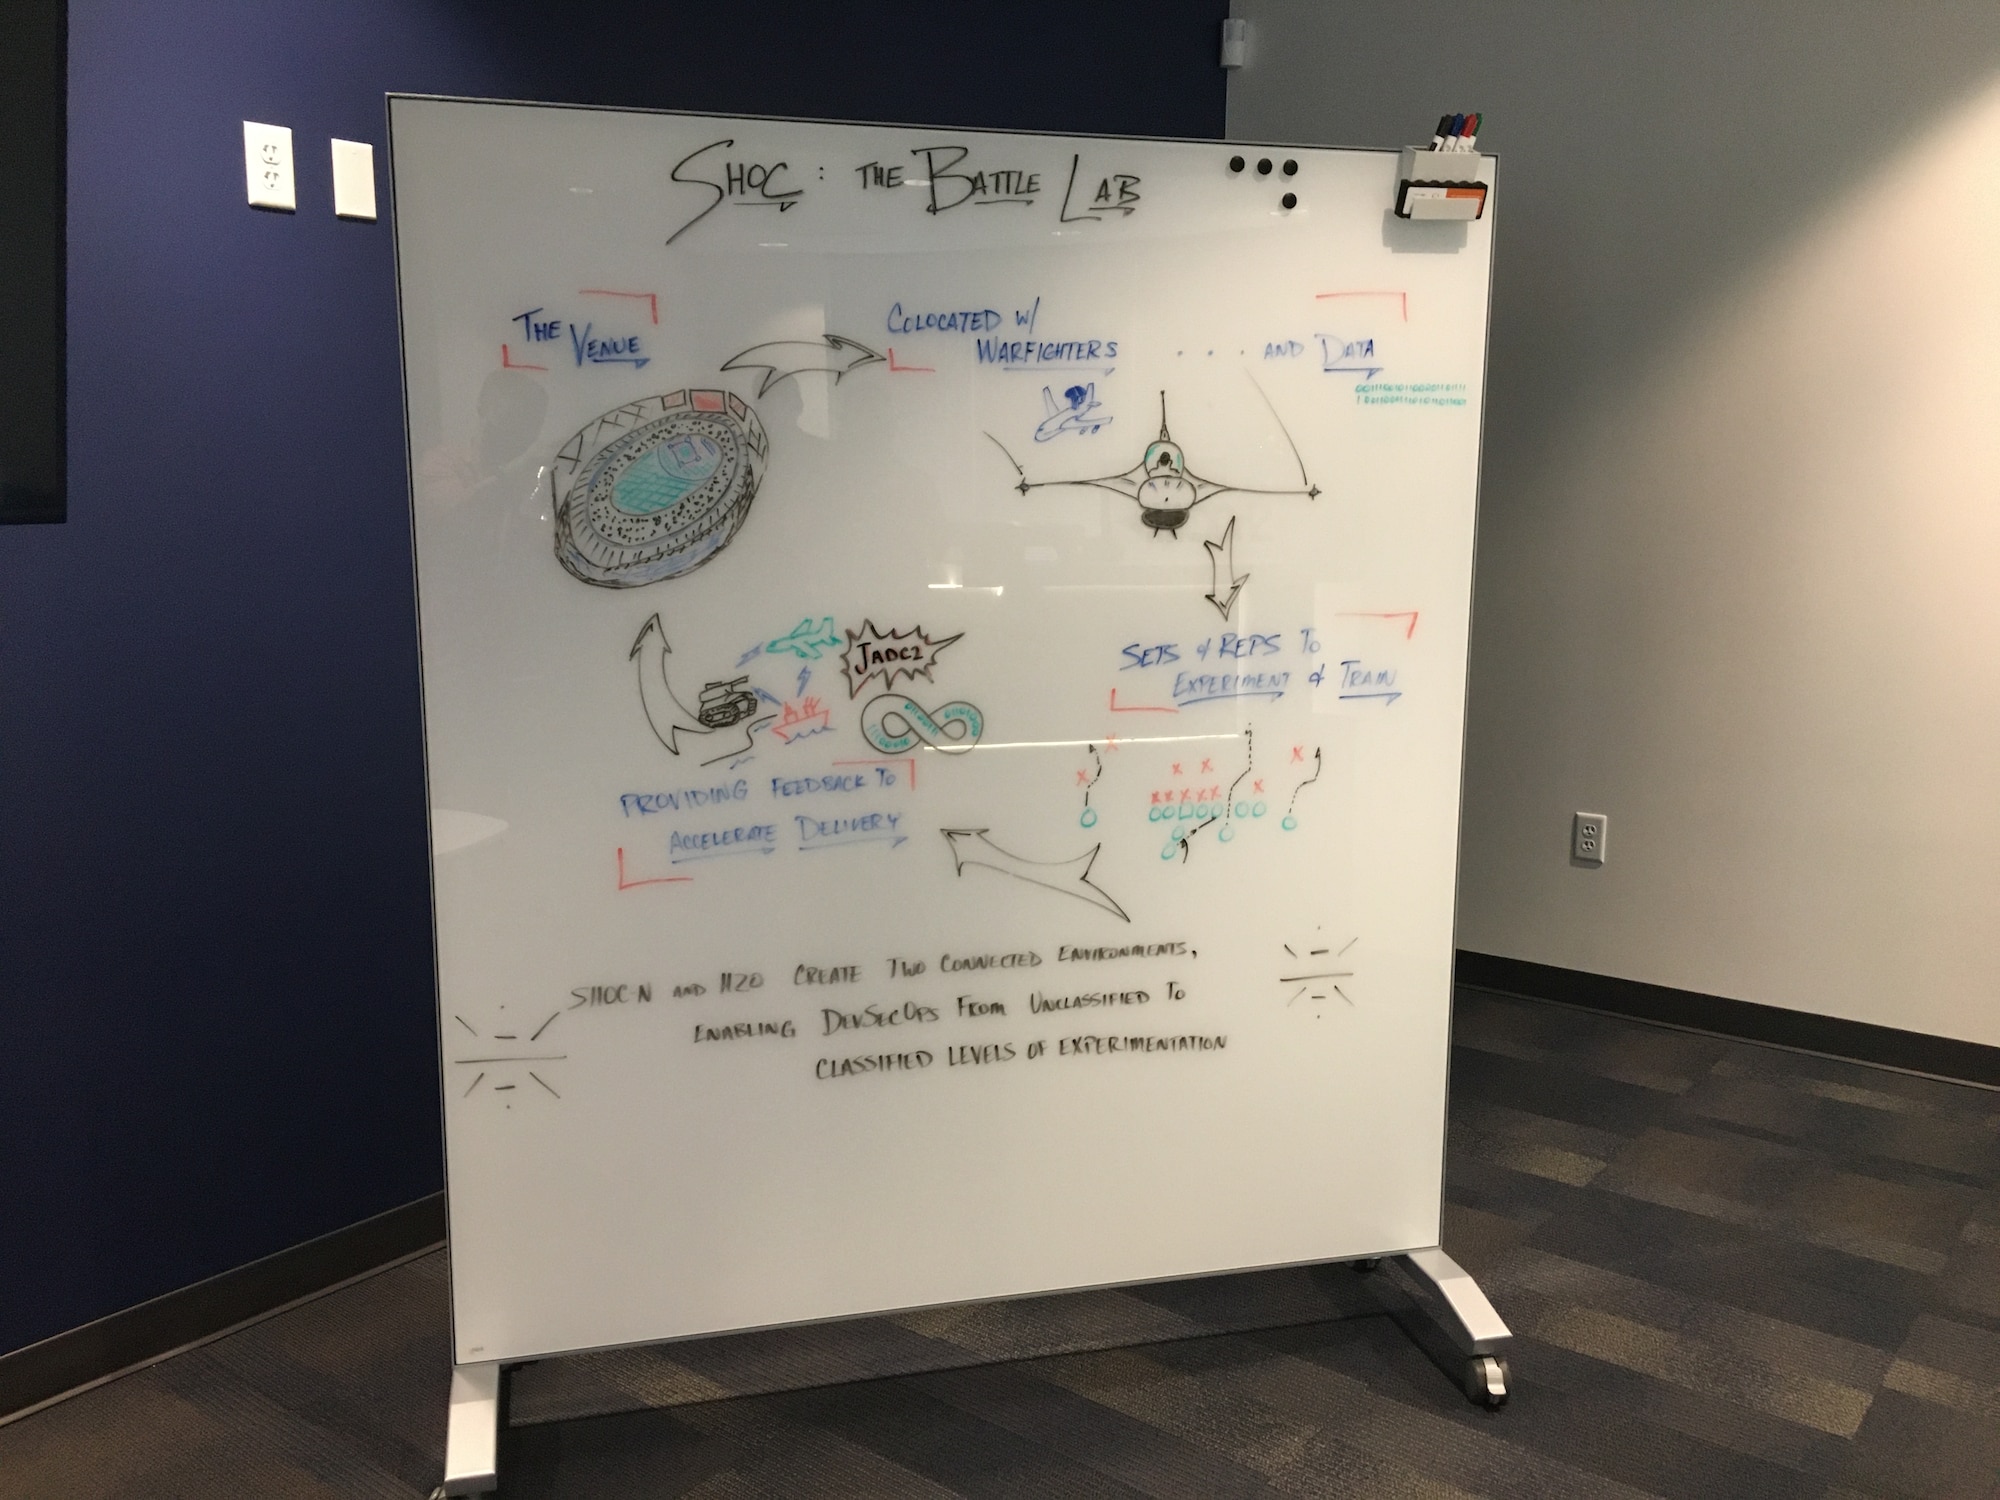 SHOC: THE BATTLE LAB
THE VENUE
COLOCATED W/
WARFIGHTERS
. . . AND DATA
JADC2
SETS & REPS TO
EXPERIMENT & TRAIN
PROVIDING FEEDBACK TO
ACCELERATE DELIVERY
SHOC-N AND H2O CREATE TWO CONNECTED ENVIRONMENTS,
ENABLING DEVSECOPS FROM UNCLASSIFIED TO
CLASSIFIED LEVELS OF EXPERIMENTATION